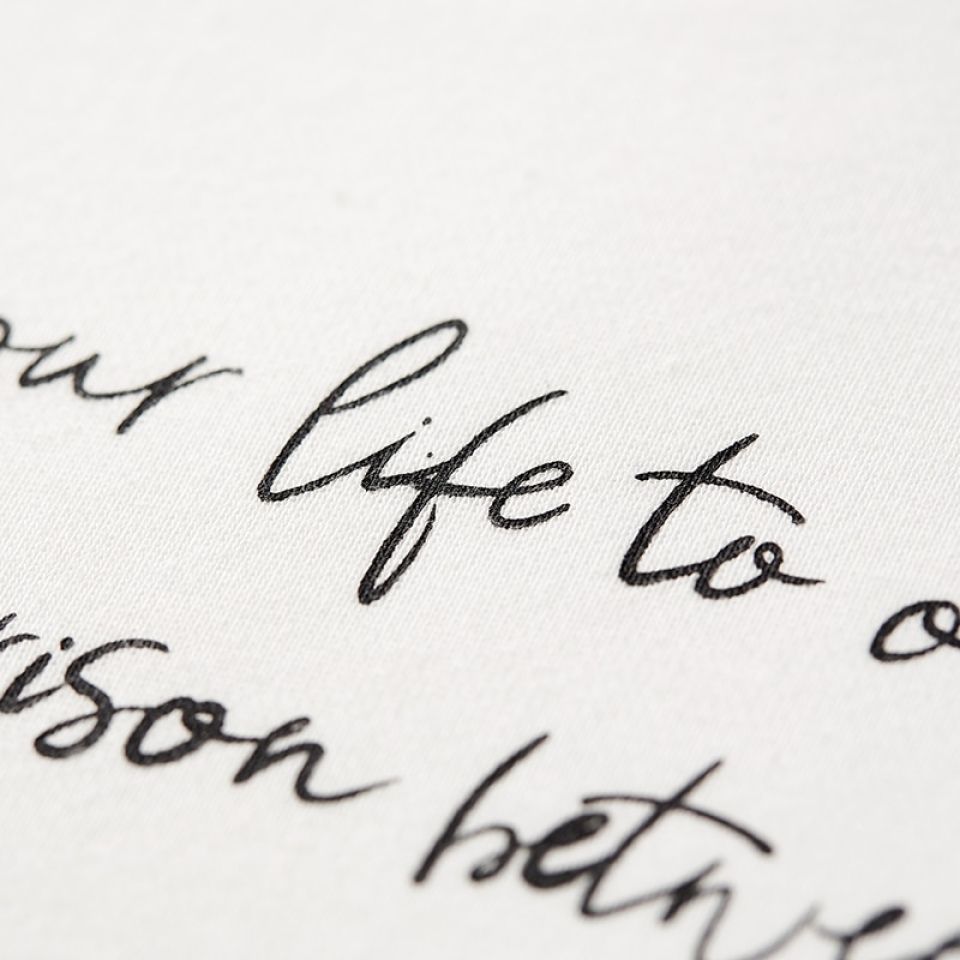 our life to
ison betwee